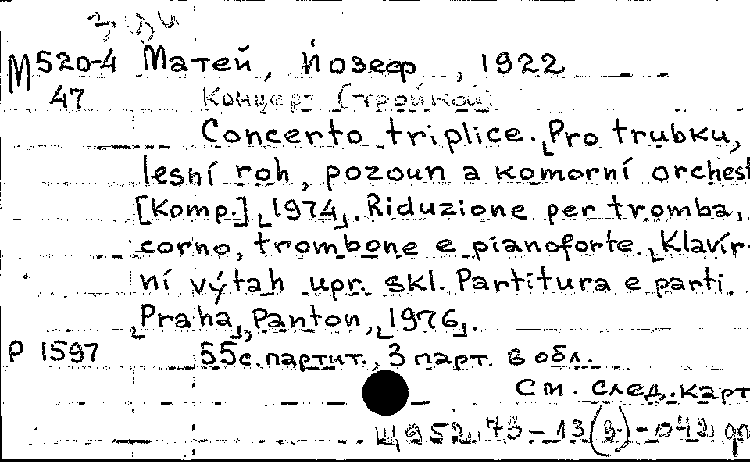 М520-4 Матей, Йозеф, 1922
47 Концерт [тройной]
Concerto triplice. Pro trubku,
lesní roh, pozoun a komorní orchest
[Komp.] 1974. Riduzione per tromba,
corno, trombone e pianoforte. Klavír-
ní výtah upr. skl. Partitura e parti.
Praha, Panton, 1976.
Р 1597 55с. партит., 3 парт. в обл.
См. след. карт
Щ952.73-13(3)-042